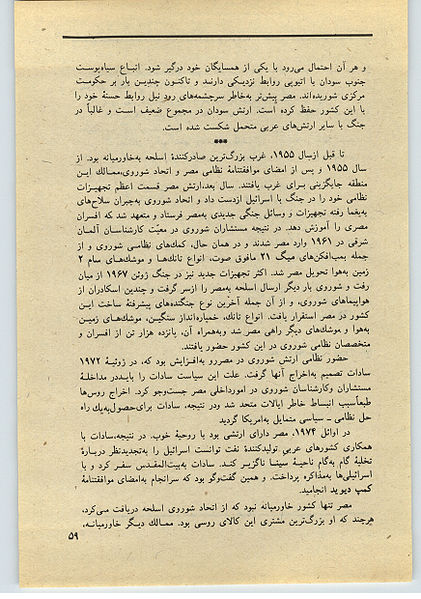 و هر آن احتمال می‌رود با یکی از همسایگان خود درگیر شود. اتباع سیاه‌پوست
جنوب سودان با اتیوپی روابط نزدیکی دارند و تاکنون چندین بار بر حکومت
مرکزی شوریده‌اند. مصر پیش‌تر به‌خاطر سرچشمه‌های رود نیل روابط حسنهٔ خود را
با این کشور حفظ کرده است. ارتش سودان در مجموع ضعیف است و غالباً در
جنگ با سایر ارتش‌های عربی متحمل شکست شده است.
***
تا قبل ازسال ۱۹۵۵، غرب بزرگ‌ترین صادرکنندهٔ اسلحه به‌خاورمیانه بود. از
سال ۱۹۵۵ و پس از امضای موافقتنامهٔ نظامی مصر و اتحاد شوروی،ممالک این
منطقه جایگزینی برای غرب یافتند. سال بعد،ارتش مصر قسمت اعظم تجهیزات
نظامی خود را در جنگ با اسرائیل ازدست داد و اتحاد شوروی به‌جبران سلاح‌های
به‌یغما رفته تجهیزات و وسائل جنگی جدیدی به‌مصر فرستاد و متعهد شد که افسران
مصری را آموزش دهد. در نتیجه مستشاران شوروی در معیّت کارشناسان آلمان
شرقی در ۱۹۶۱ وارد مصر شدند و در همان حال، کمک‌های نظامی شوروی و از
جمله بمب‌افکن‌های میگ ۲۱ مافوق صوت، انواع تانک‌ها و موشک‌های سام ۲
زمین به‌هوا تحویل مصر شد. اکثر تجهیزات جدید نیز در جنگ ژوئن ۱۹۶۷ از میان
رفت و شوروی بار دیگر ارسال اسلحه به‌مصر را ازسر گرفت و چندین اسکادران از
هواپیماهای شوروی، و از آن جمله آخرین نوع جنگنده‌های پیشرفتهٔ ساخت این
کشور در مصر استقرار یافت. انواع تانک، خمپاره‌انداز سنگین، موشک‌های زمین
به‌هوا و موشک‌های دیگر راهی مصر شد وبه‌همراه آن، پانزده هزار تن از افسران و
متخصصان نظامی شوروی در این کشور حضور یافتند.
حضور نظامی ارتش شوروی در مصررو به‌افزایش بود که، در ژوئیهٔ ۱۹۷۲
سادات تصمیم به‌اخراج آنها گرفت. علت این سیاست سادات را بایددر مداخلهٔ
مستشاران وکارشناسان شوروی در امورداخلی مصر جست‌وجو کرد. اخراج روس‌ها
طبعاًسبب انبساط خاطر ایالات متحد شد ودر نتیجه، سادات برای‌حصول‌به‌یك راه
حل نظامی ـ سیاسی متمایل به‌امریکا گردید
در اوائل ۱۹۷۴، مصر دارای ارتشی بود با روحیهٔ خوب. در نتیجه،سادات با
همکاری کشورهای عربی تولیدکنندهٔ نفت توانست اسرائیل را به‌تجدیدنظر دربارهٔ
تخلیهٔ گام به‌گام ناحیهٔ سینا ناگزیر کند. سادات به‌بیت‌المقدس سفر کرد و با
اسرائیلی‌ها به‌مذاکره پرداخت. و همین گفت‌وگو بود که سرانجام به‌امضای موافقتنامهٔ
کمپ دیوید انجامید.
مصر تنها کشور خاورمیانه نبود که از اتحاد شوروی اسلحه دریافت می‌کرد،
هرچند که او بزرگ‌ترین مشتری این کالای روسی بود. ممالک دیگر خاورمیانه،
۵۹